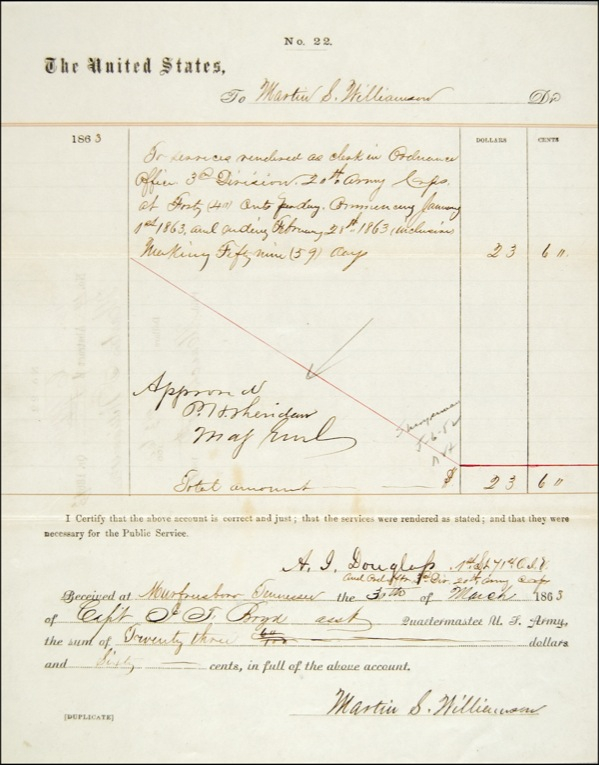 No. 22.
The United States,
To Martin S. Williamson Dr
1863 DOLLARS CENTS
To services rendered as clerk in Ordnance
Office 3rd Division. 20th Army Corps.
at Forty (40) Cents per day. Commencing January
1st 1863, and ending February 28th 1863, inclusive
Making Fifty nine (59) days 23 60
Approved
P. H. Sheridan
Maj Genl
Total amount $ 23 60
I Certify that the above account is correct and just; that the services were rendered as stated; and that they were
necessary for the Public Service.
A. J. Douglass 1st Lt 71st O.V.
Actg Ord. Offr. 3rd Div. 20th Army Corps
Received at Murfreesboro Tennessee the 30th of March 1863
of Capt J T Boyd asst Quartermaster U. S. Army,
the sum of Twenty three 60/100 dollars
and Sixty cents, in full of the above account.
Martin S. Williamson
[DUPLICATE]